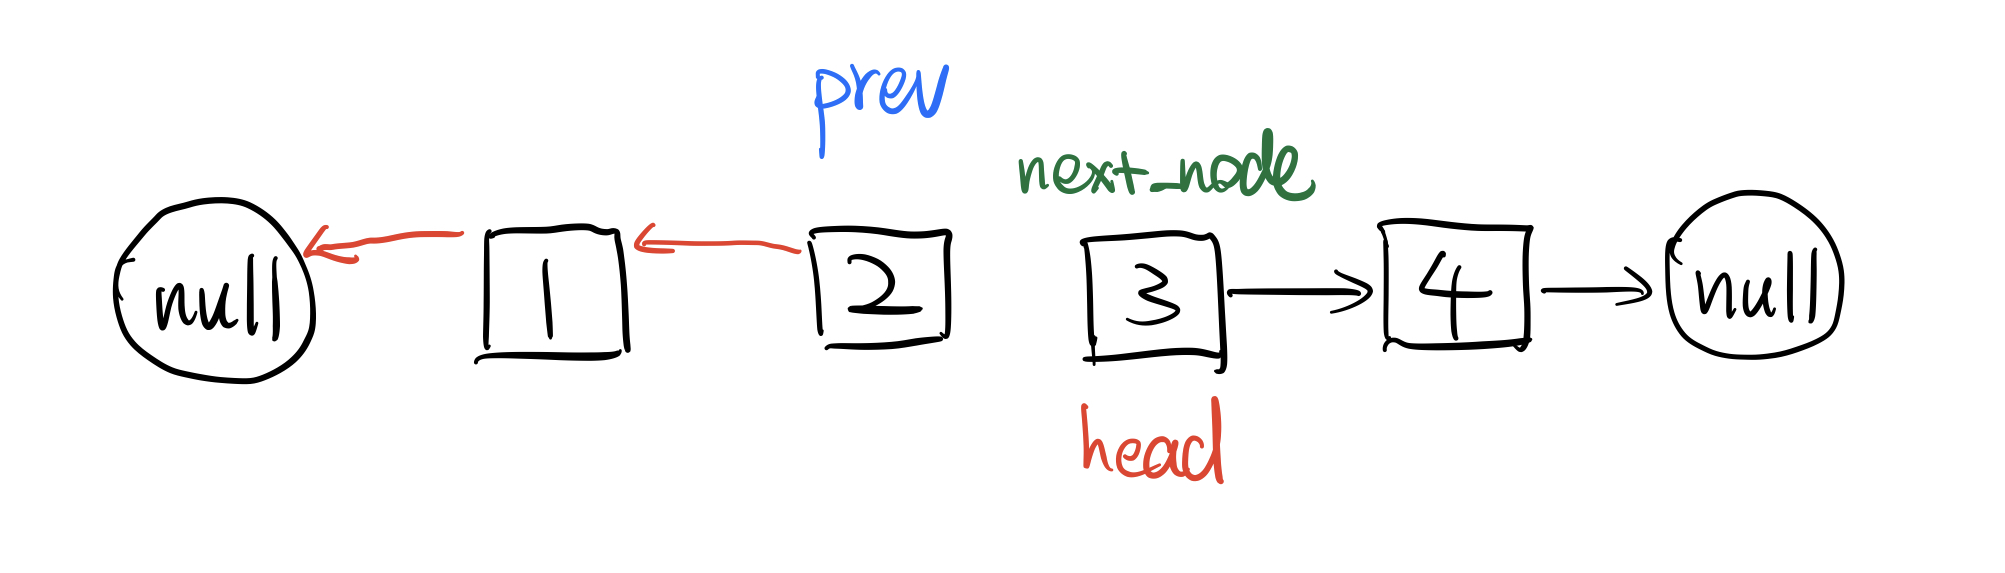 prev
next_node
null 1 2 3 4 null
head